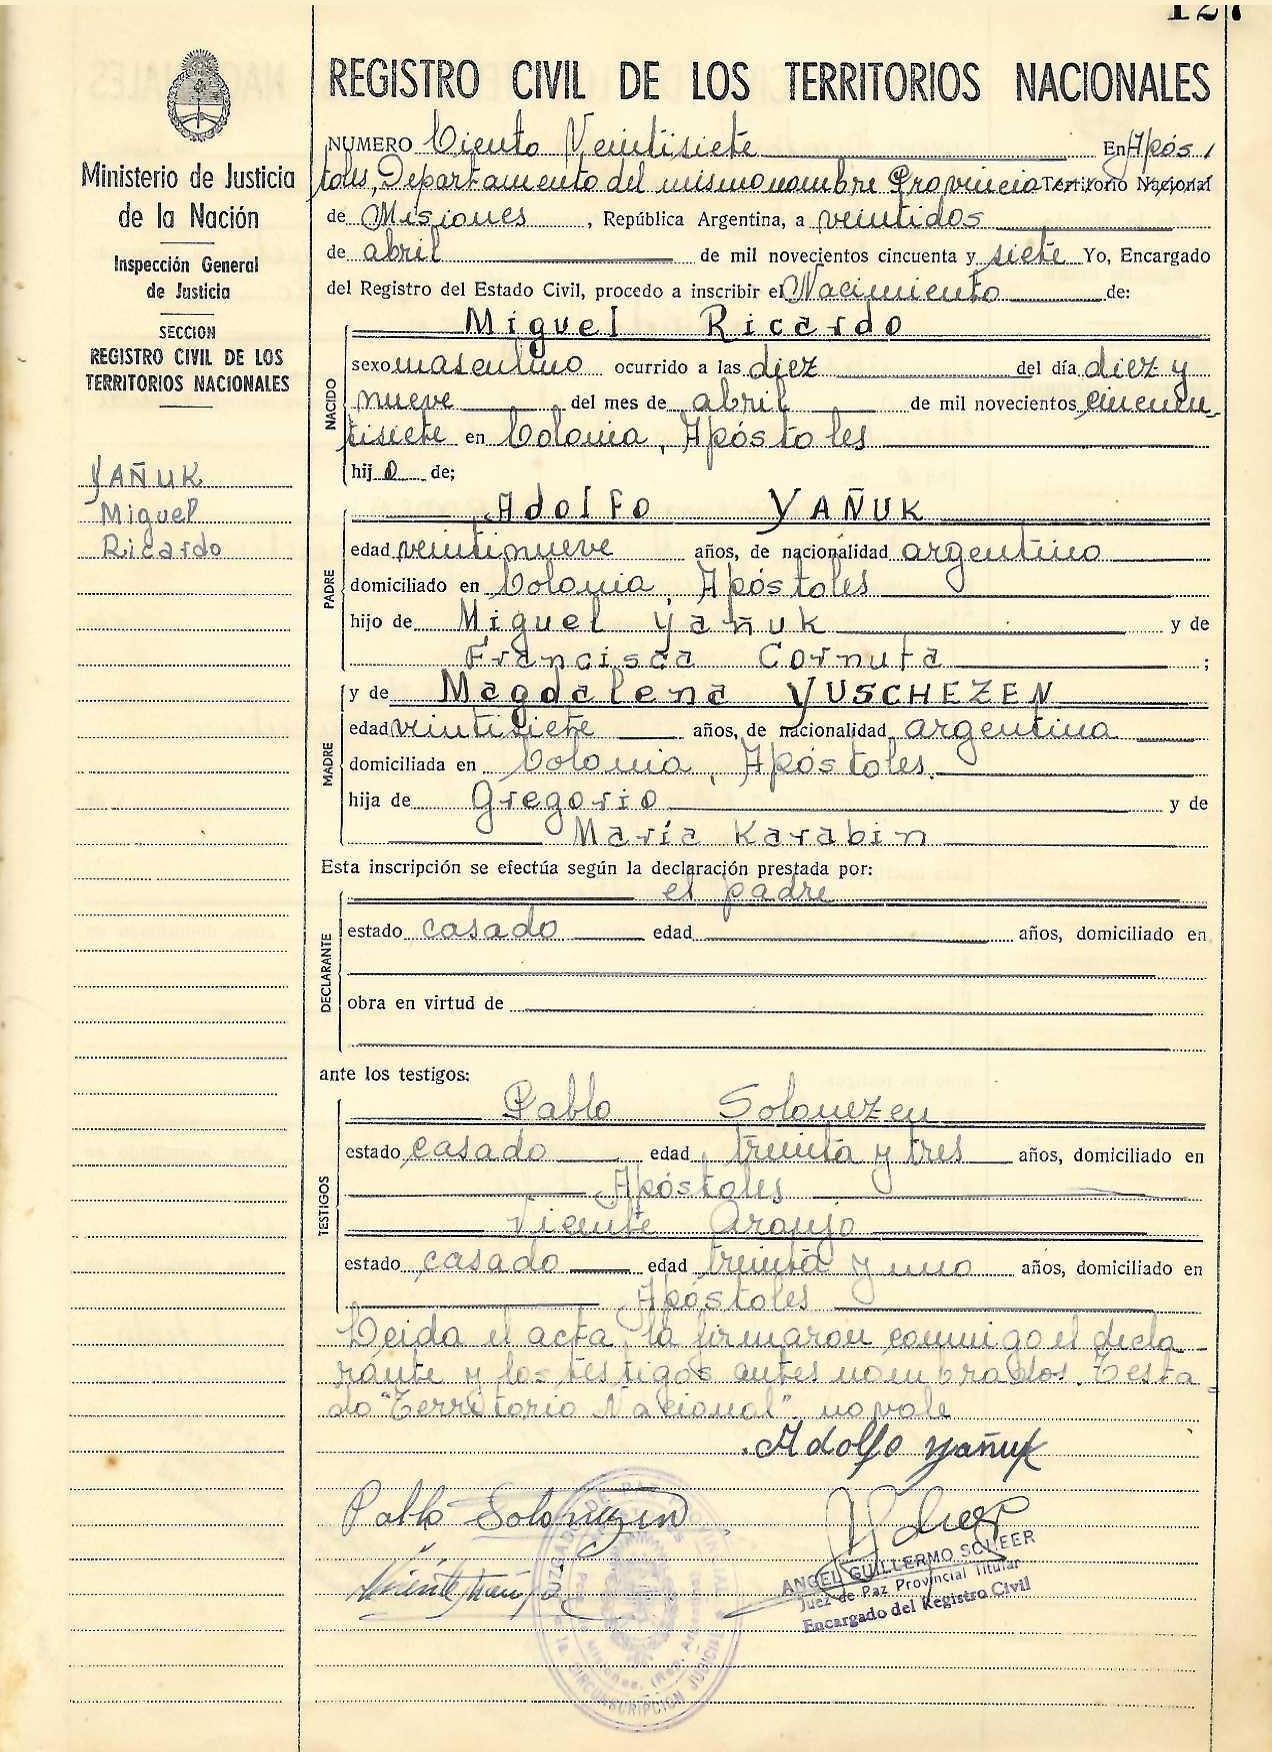 127
REGISTRO CIVIL DE LOS TERRITORIOS NACIONALES
Ministerio de Justicia
de la Nación
Inspección General
de Justicia
SECCION
REGISTRO CIVIL DE LOS
TERRITORIOS NACIONALES
YAÑUK
Miguel
Ricardo
NUMERO Ciento Veintisiete En Após
toles, Departamento del mismo nombre Provincia Territorio Nacional
de Misiones, República Argentina, a veintidos
de abril de mil novecientos cincuenta y siete Yo, Encargado
del Registro del Estado Civil, procedo a inscribir el Nacimiento de:
NACIDO
Miguel Ricardo
sexo masculino ocurrido a las diez del día diez y
nueve del mes de abril de mil novecientos cincuen-
tisiete en Colonia, Apóstoles
hijo de;
PADRE
Adolfo YAÑUK
edad veintinueve años, de nacionalidad argentino
domiciliado en Colonia, Apóstoles
hijo de Miguel Yañuk y de
Francisca Cornuta ;
MADRE
y de Magdalena YUSCHEZEN
edad veintisiete años, de nacionalidad argentina
domiciliada en Colonia, Apóstoles.
hija de Gregorio y de
María Karabin
Esta inscripción se efectúa según la declaración prestada por:
DECLARANTE
el padre
estado casado edad años, domiciliado en
obra en virtud de
ante los testigos:
TESTIGOS
Pablo Solonezen
estado casado edad treinta y tres años, domiciliado en
Apóstoles
Vicente Araujo
estado casado edad treinta y uno años, domiciliado en
Apóstoles
Leida el acta, la firmaron conmigo el decla
rante y los testigos antes nombrados. Testa-
do "Territorio Nacional" no vale
Adolfo Yañuk
Pablo Solonezen
ANGEL GUILLERMO SCHEER
Juez de Paz Provincial Titular
Encargado del Registro Civil